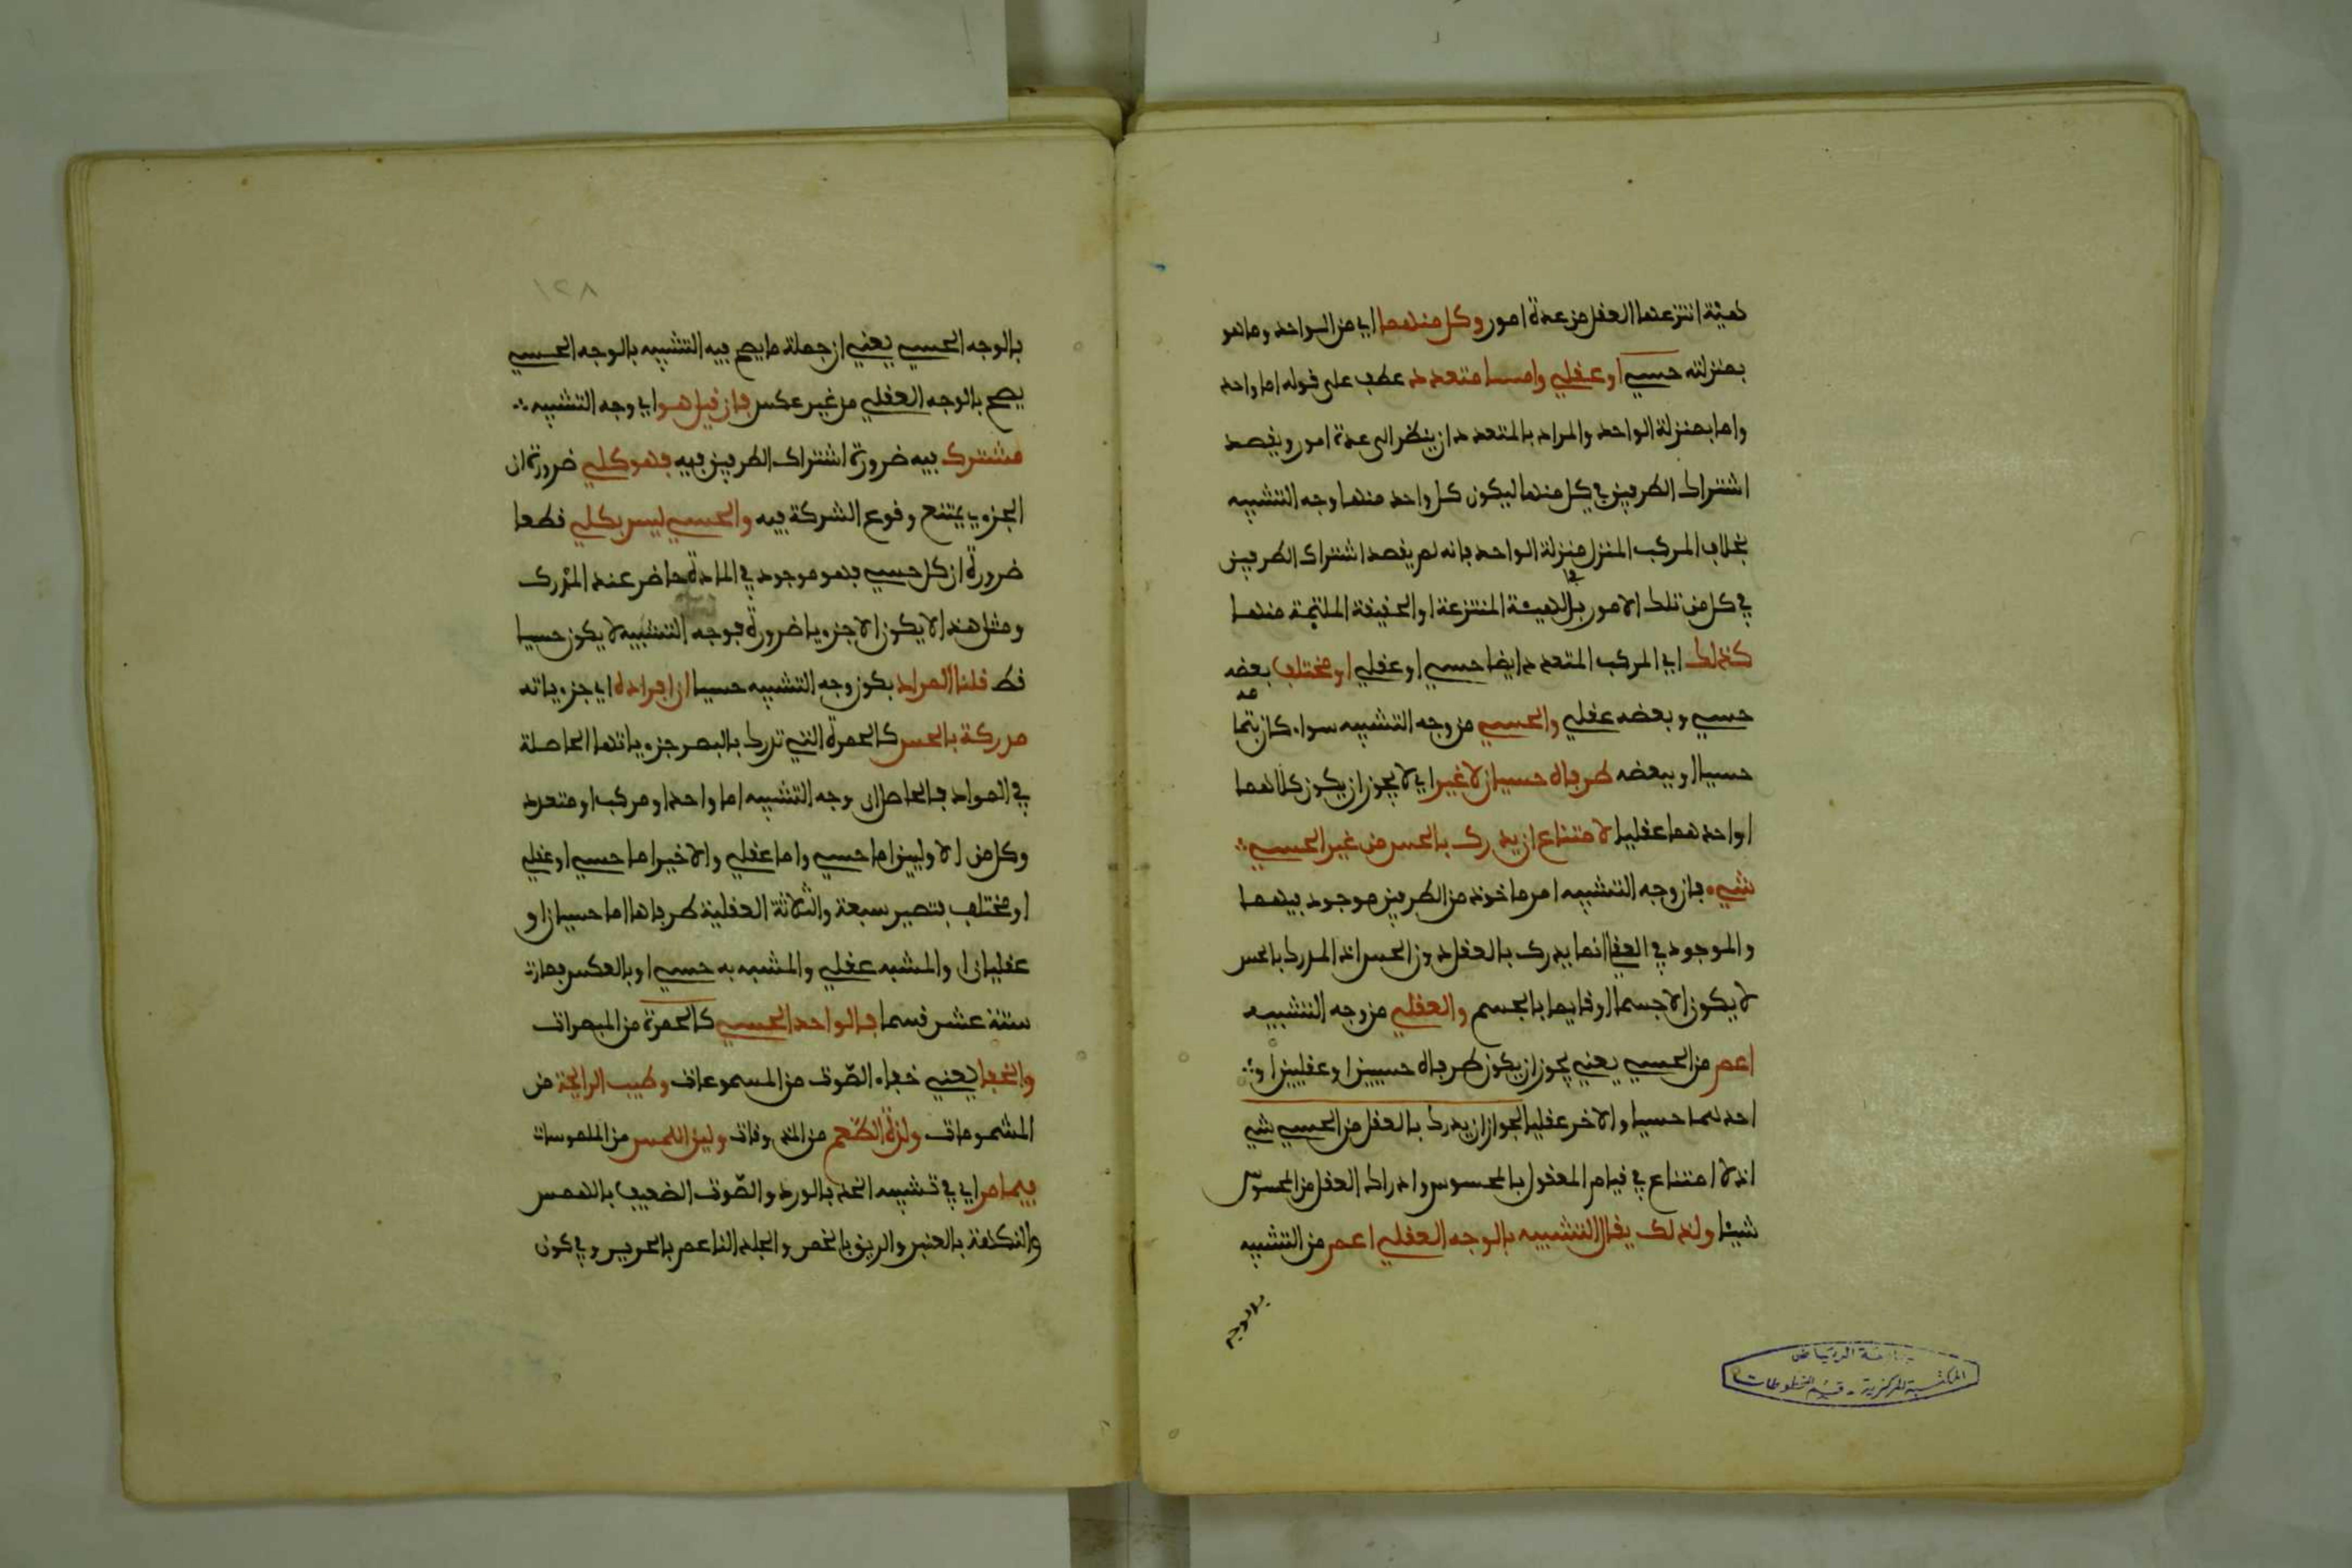 هيئة انتزعها العقل من عدة امور وكل منهما اي من الواحد وما هو
بمنزلته حسي او عقلي واما متعدد عطف على قوله اما واحد
واما بمنزلة الواحد والمراد بالمتعدد ان ينظر الى عدة امور ويقصد
اشتراك الطرفين في كل منها ليكون كل واحد منها وجه التشبيه
بخلاف المركب المنزل منزلة الواحد فانه لم يقصد اشتراك الطرفين
في كل من تلك الامور بل في الهيئة المنتزعة او الحقيقة الملتئمة منها
كذلك اي المركب المتعدد ايضا حسي او عقلي او مختلف بعضه
حسي وبعضه عقلي والحسي من وجه التشبيه سواء كان بتمامه
حسيا او ببعضه طرفاه حسيان لا غير اي لا يجوز ان يكون كلاهما
او احدهما عقليا لامتناع ان يدرك بالحس من غير الحسي
شيء فان وجه التشبيه امر ماخوذ من الطرفين موجود فيهما
والموجود في العقل انما يدرك بالعقل دون الحس اذ المدرك بالحس
لا يكون الا جسما او قايما بالجسم والعقلي من وجه التشبيه
اعم من الحسي يعني يجوز ان يكون طرفاه حسيين او عقليين او
احدهما حسيا والاخر عقليا لجواز ان يدرك بالعقل من الحسي شيء
اذ لا امتناع في قيام المعقول بالمحسوس وادراك العقل من المحسوس
شيئا ولذلك يقال التشبيه بالوجه العقلي اعم من التشبيه
بالوجه
جامعة الرياض
المكتبة المركزية - قسم المخطوطات
١٢٨
بالوجه الحسي يعني ان جملة ما يصح فيه التشبيه بالوجه الحسي
يصح بالوجه العقلي من غير عكس فان قيل هو اي وجه التشبيه
مشترك فيه ضرورة اشتراك الطرفين فيه فهو كلي ضرورة ان
الجزءي يمتنع وقوع الشركة فيه والحسي ليس بكلي قطعا
ضرورة ان كل حسي فهو موجود في المادة حاضر عند المدرك
ومثل هذا لا يكون الا جزءيا ضرورة فوجه التشبيه لا يكون حسيا
قط قلنا المراد بكون وجه التشبيه حسيا ان افراده اي جزءياته
مدركة بالحس كالحمرة التي تدرك بالبصر جزءياتها الحاصلة
في المواد فالحاصل ان وجه التشبيه اما واحد او مركب او متعدد
وكل من الاولين اما حسي واما عقلي والاخير اما حسي او عقلي
او مختلف فتصير سبعة والثلاثة العقلية طرفاها اما حسيان او
عقليان او المشبه عقلي والمشبه به حسي او بالعكس فصارت
ستة عشر قسما فالواحد الحسي كالحمرة من المبصرات
والخفا يعني خفاء الصوت من المسموعات وطيب الرايحة من
المشمومات ولذة الطعم من المذوقات ولين اللمس من الملموسات
فيما مر اي في تشبيه الخد بالورد والصوت الضعيف بالهمس
والنكهة بالعنبر والريق بالخمر والجلد الناعم بالحرير وفي كون